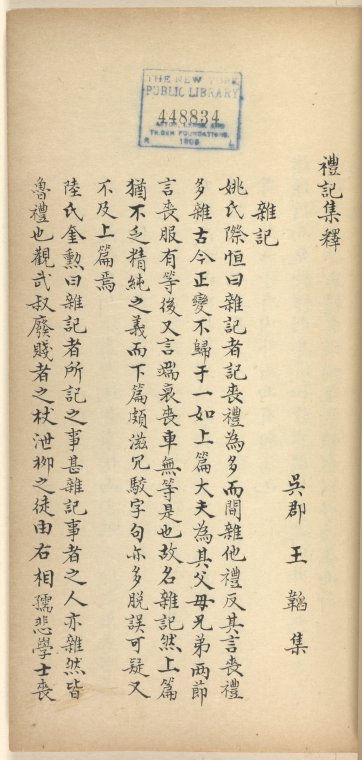 禮記集釋
吳郡 王 韜 集
雜記
姚氏際恒曰雜記者記喪禮為多而間雜他禮及其言喪禮
多雜古今正變不歸于一如上篇大夫為其父母兄弟兩節
言喪服有等後又言端衰喪車無等是也故名雜記然上篇
猶不乏精純之義而下篇頗滋冗駁字句亦多脫誤可疑又
不及上篇焉
陸氏奎勳曰雜記者所記之事甚雜記事者之人亦雜然皆
魯禮也觀武叔廢賤者之杖泄柳之徒由右相孺悲學士喪
THE NEW YORK
PUBLIC LIBRARY
448834
ASTOR, LENOX AND
TILDEN FOUNDATIONS.
R L